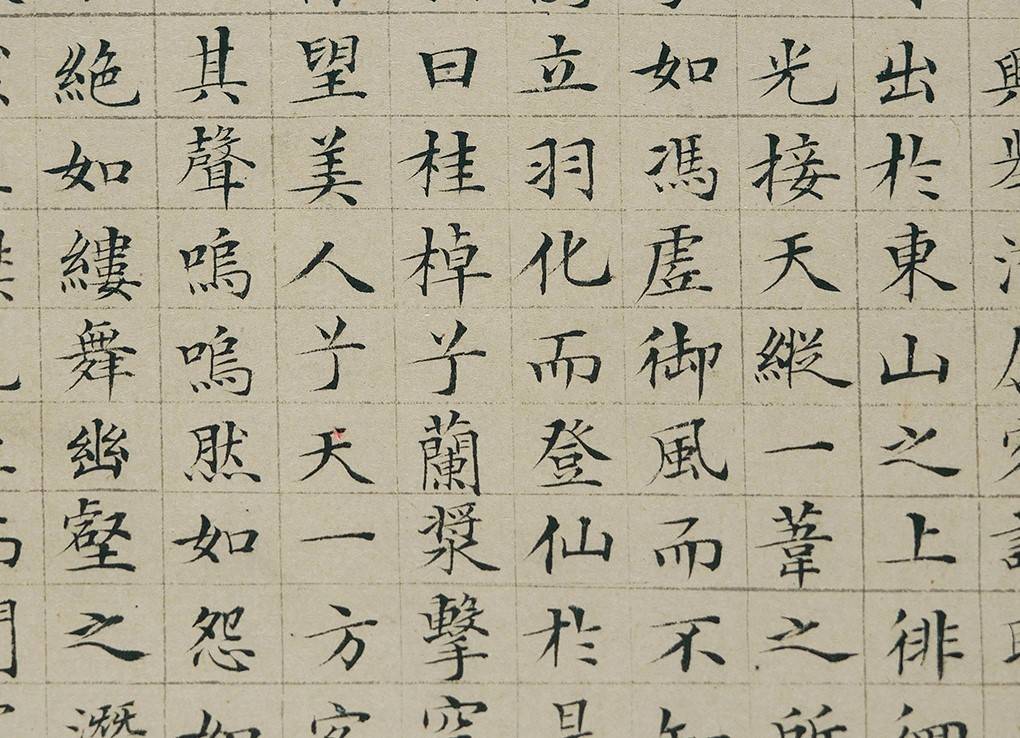 出於東山之上徘
光接天縱一葦之所
如馮虛御風而不知
立羽化而登仙於是
曰桂棹兮蘭槳擊空
望美人兮天一方客
其聲嗚嗚然如怨如
絶如縷舞幽壑之潛